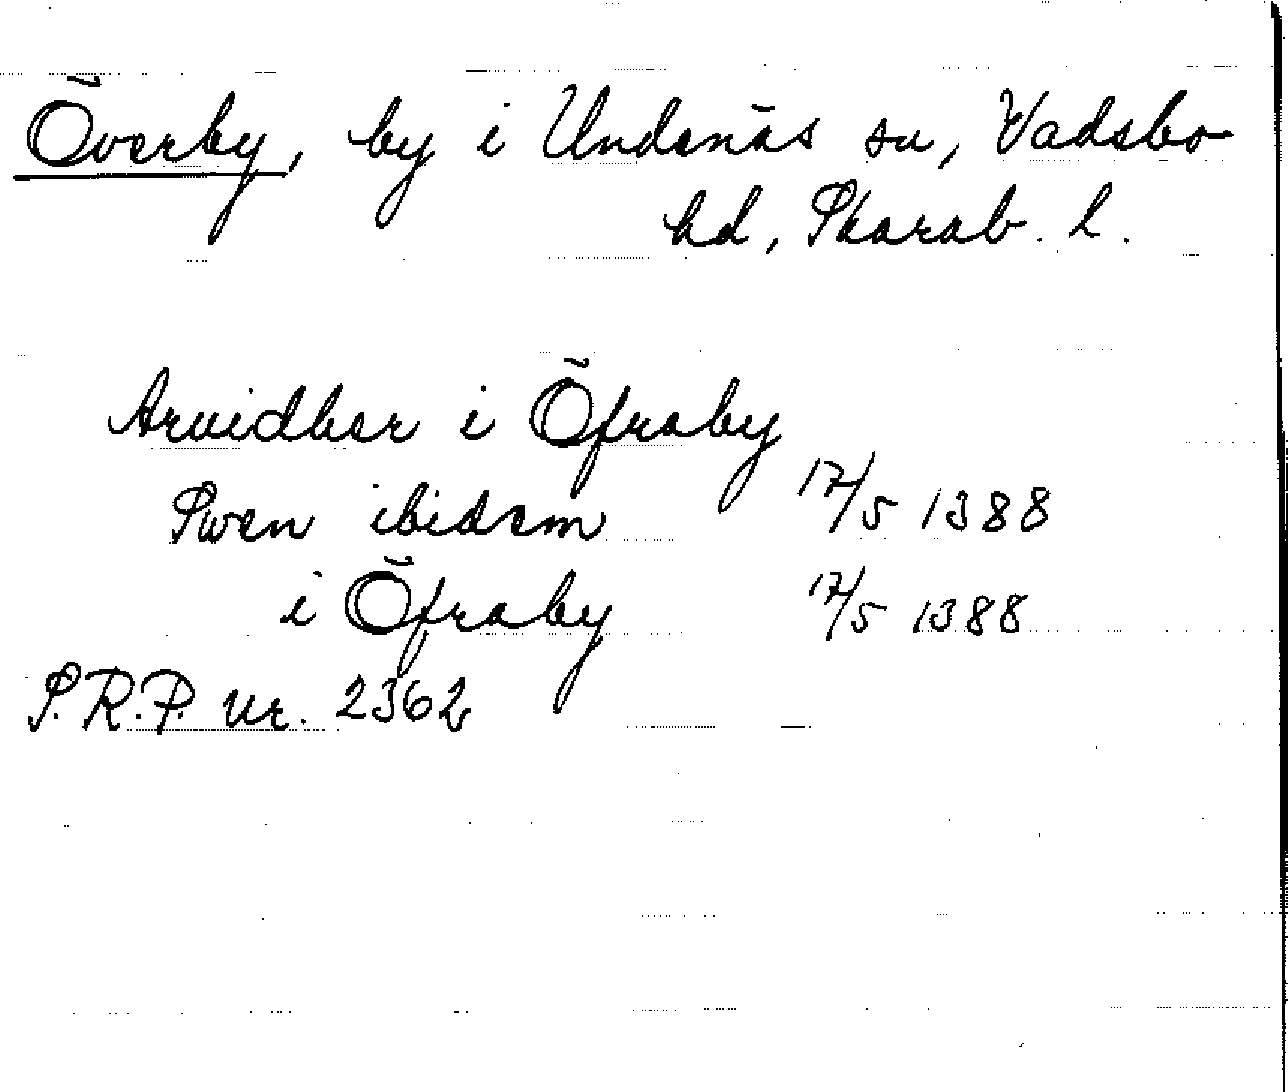 Överby, by i Undenäs sn, Vadsbo
hd, Skarab. l.
Arvidher i Öfraby
Swen ibidem 17/5 1388
i Öfraby 17/5 1388
S.R.P. nr. 2362